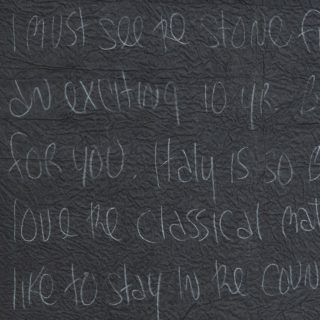 I must see the stone
an exciting 10 yr.
for you. Italy is so
love the classical
like to stay in the